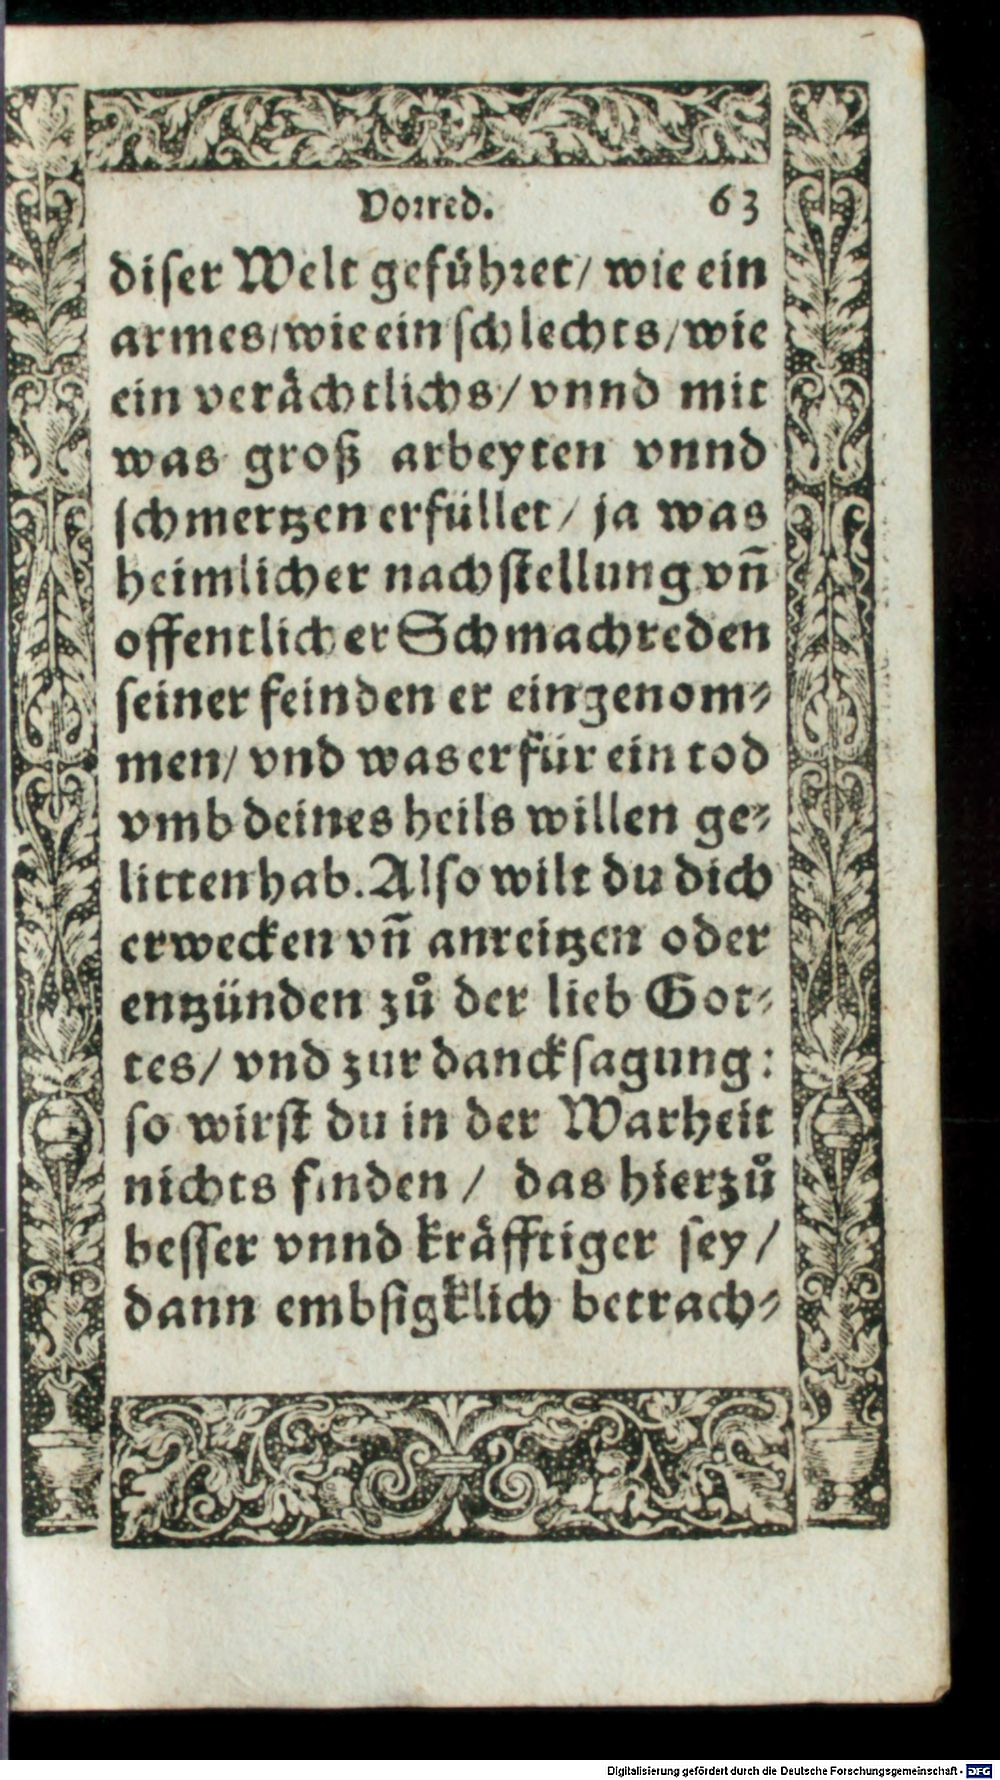 Vorred. 63
diser Welt geführet/ wie ein
armes/ wie ein schlechts/ wie
ein verächtlichs/ vnnd mit
was groß arbeyten vnnd
schmertzen erfüllet/ ja was
heimlicher nachstellung vn̄
offentlicher Schmachreden
seiner feinden er eingenom⸗
men/ vnd was er für ein tod
vmb deines heils willen ge⸗
litten hab. Also wilt du dich
erwecken vn̄ anreitzen oder
entzünden zů der lieb Got⸗
tes/ vnd zur dancksagung:
so wirst du in der Warheit
nichts finden/ das hierzů
besser vnnd kräfftiger sey/
dann embsigklich betrach⸗
Digitalisierung gefördert durch die Deutsche Forschungsgemeinschaft - DFG